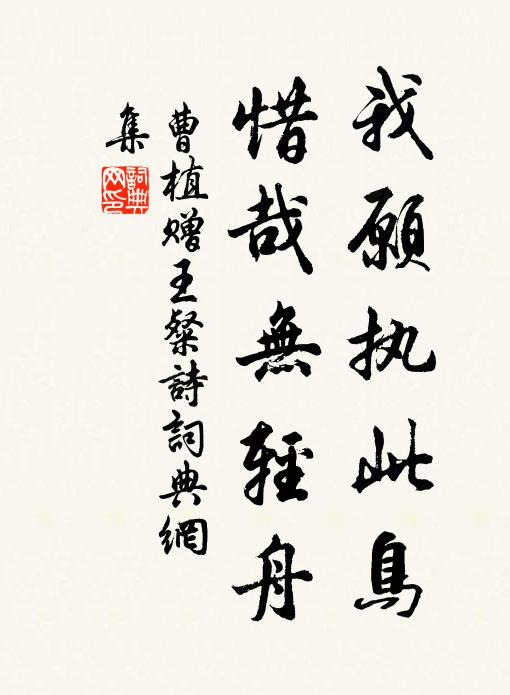 我願执此鳥
惜哉無輕舟
曹植赠王粲詩詞典網
集
詞典网印